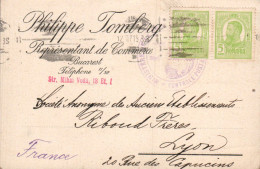 Philippe Tomberg
Représentant de Commerce
Bucarest
Téléphone
Str. Mihai Voda,
Société Anonyme des Anciens Etablissements
Riboud Frères,
Lyon
20 Rue des Capucins
France
5
5